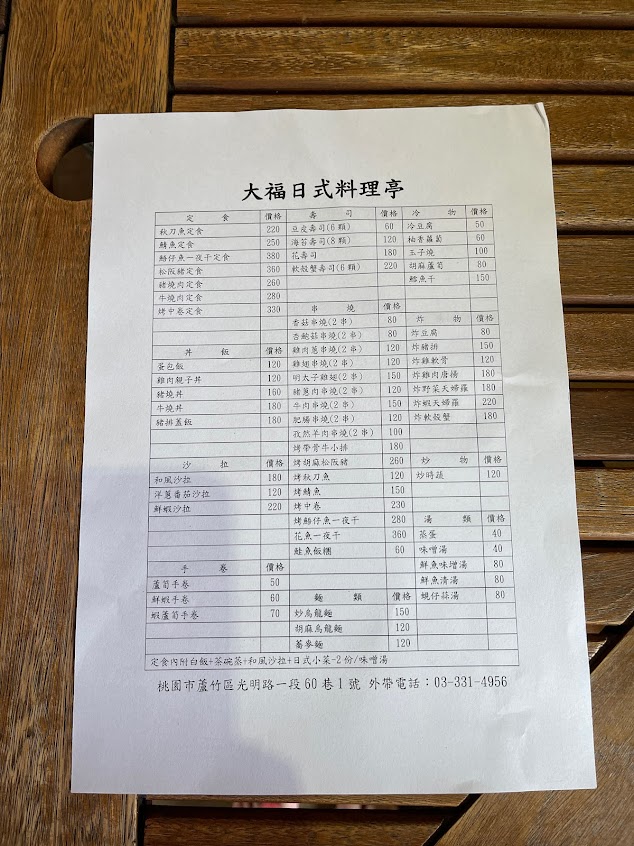 大福日式料理亭
定食 價格
秋刀魚定食 220
鯖魚定食 250
仔魚一夜干定食 380
松阪豬定食 360
豬燒肉定食 260
牛燒肉定食 280
烤中卷定食 330
丼飯 價格
蛋包飯 120
雞肉親子丼 120
豬燒丼 160
牛燒丼 180
豬排蓋飯 180
沙拉 價格
和風沙拉 180
洋蔥番茄沙拉 120
鮮蝦沙拉 220
手卷 價格
蘆筍手卷 50
鮮蝦手卷 60
蝦蘆筍手卷 70
壽司 價格
豆皮壽司(6 顆) 60
海苔壽司(8 顆) 120
花壽司 180
軟殼蟹壽司(6 顆) 220
串燒 價格
香菇串燒(2 串) 80
杏鮑菇串燒(2 串) 80
雞肉蔥串燒(2 串) 120
雞翅串燒(2 串) 120
明太子雞翅(2 串) 150
豬蔥肉串燒(2 串) 120
牛肉串燒(2 串) 150
肥腸串燒(2 串) 120
孜然羊肉串燒(2 串) 100
烤帶骨牛小排 180
烤胡麻松阪豬 260
烤秋刀魚 120
烤鯖魚 150
烤中卷 230
烤仔魚一夜干 280
花魚一夜干 360
鮭魚飯糰 60
麵類 價格
炒烏龍麵 150
胡麻烏龍麵 120
蕎麥麵 120
冷物 價格
冷豆腐 50
柚香蘿蔔 60
玉子燒 100
胡麻蘆筍 80
鱈魚干 150
炸物 價格
炸豆腐 80
炸豬排 150
炸雞軟骨 120
炸雞肉唐揚 180
炸野菜天婦羅 180
炸蝦天婦羅 220
炸軟殼蟹 180
炒物 價格
炒時蔬 120
湯類 價格
蒸蛋 40
味噌湯 40
鮮魚味增湯 80
鮮魚清湯 80
蜆仔蒜湯 80
定食內附白飯+茶碗蒸+和風沙拉+日式小菜-2 份/味噌湯
桃園市蘆竹區光明路一段 60 巷 1 號 外帶電話：03-331-4956